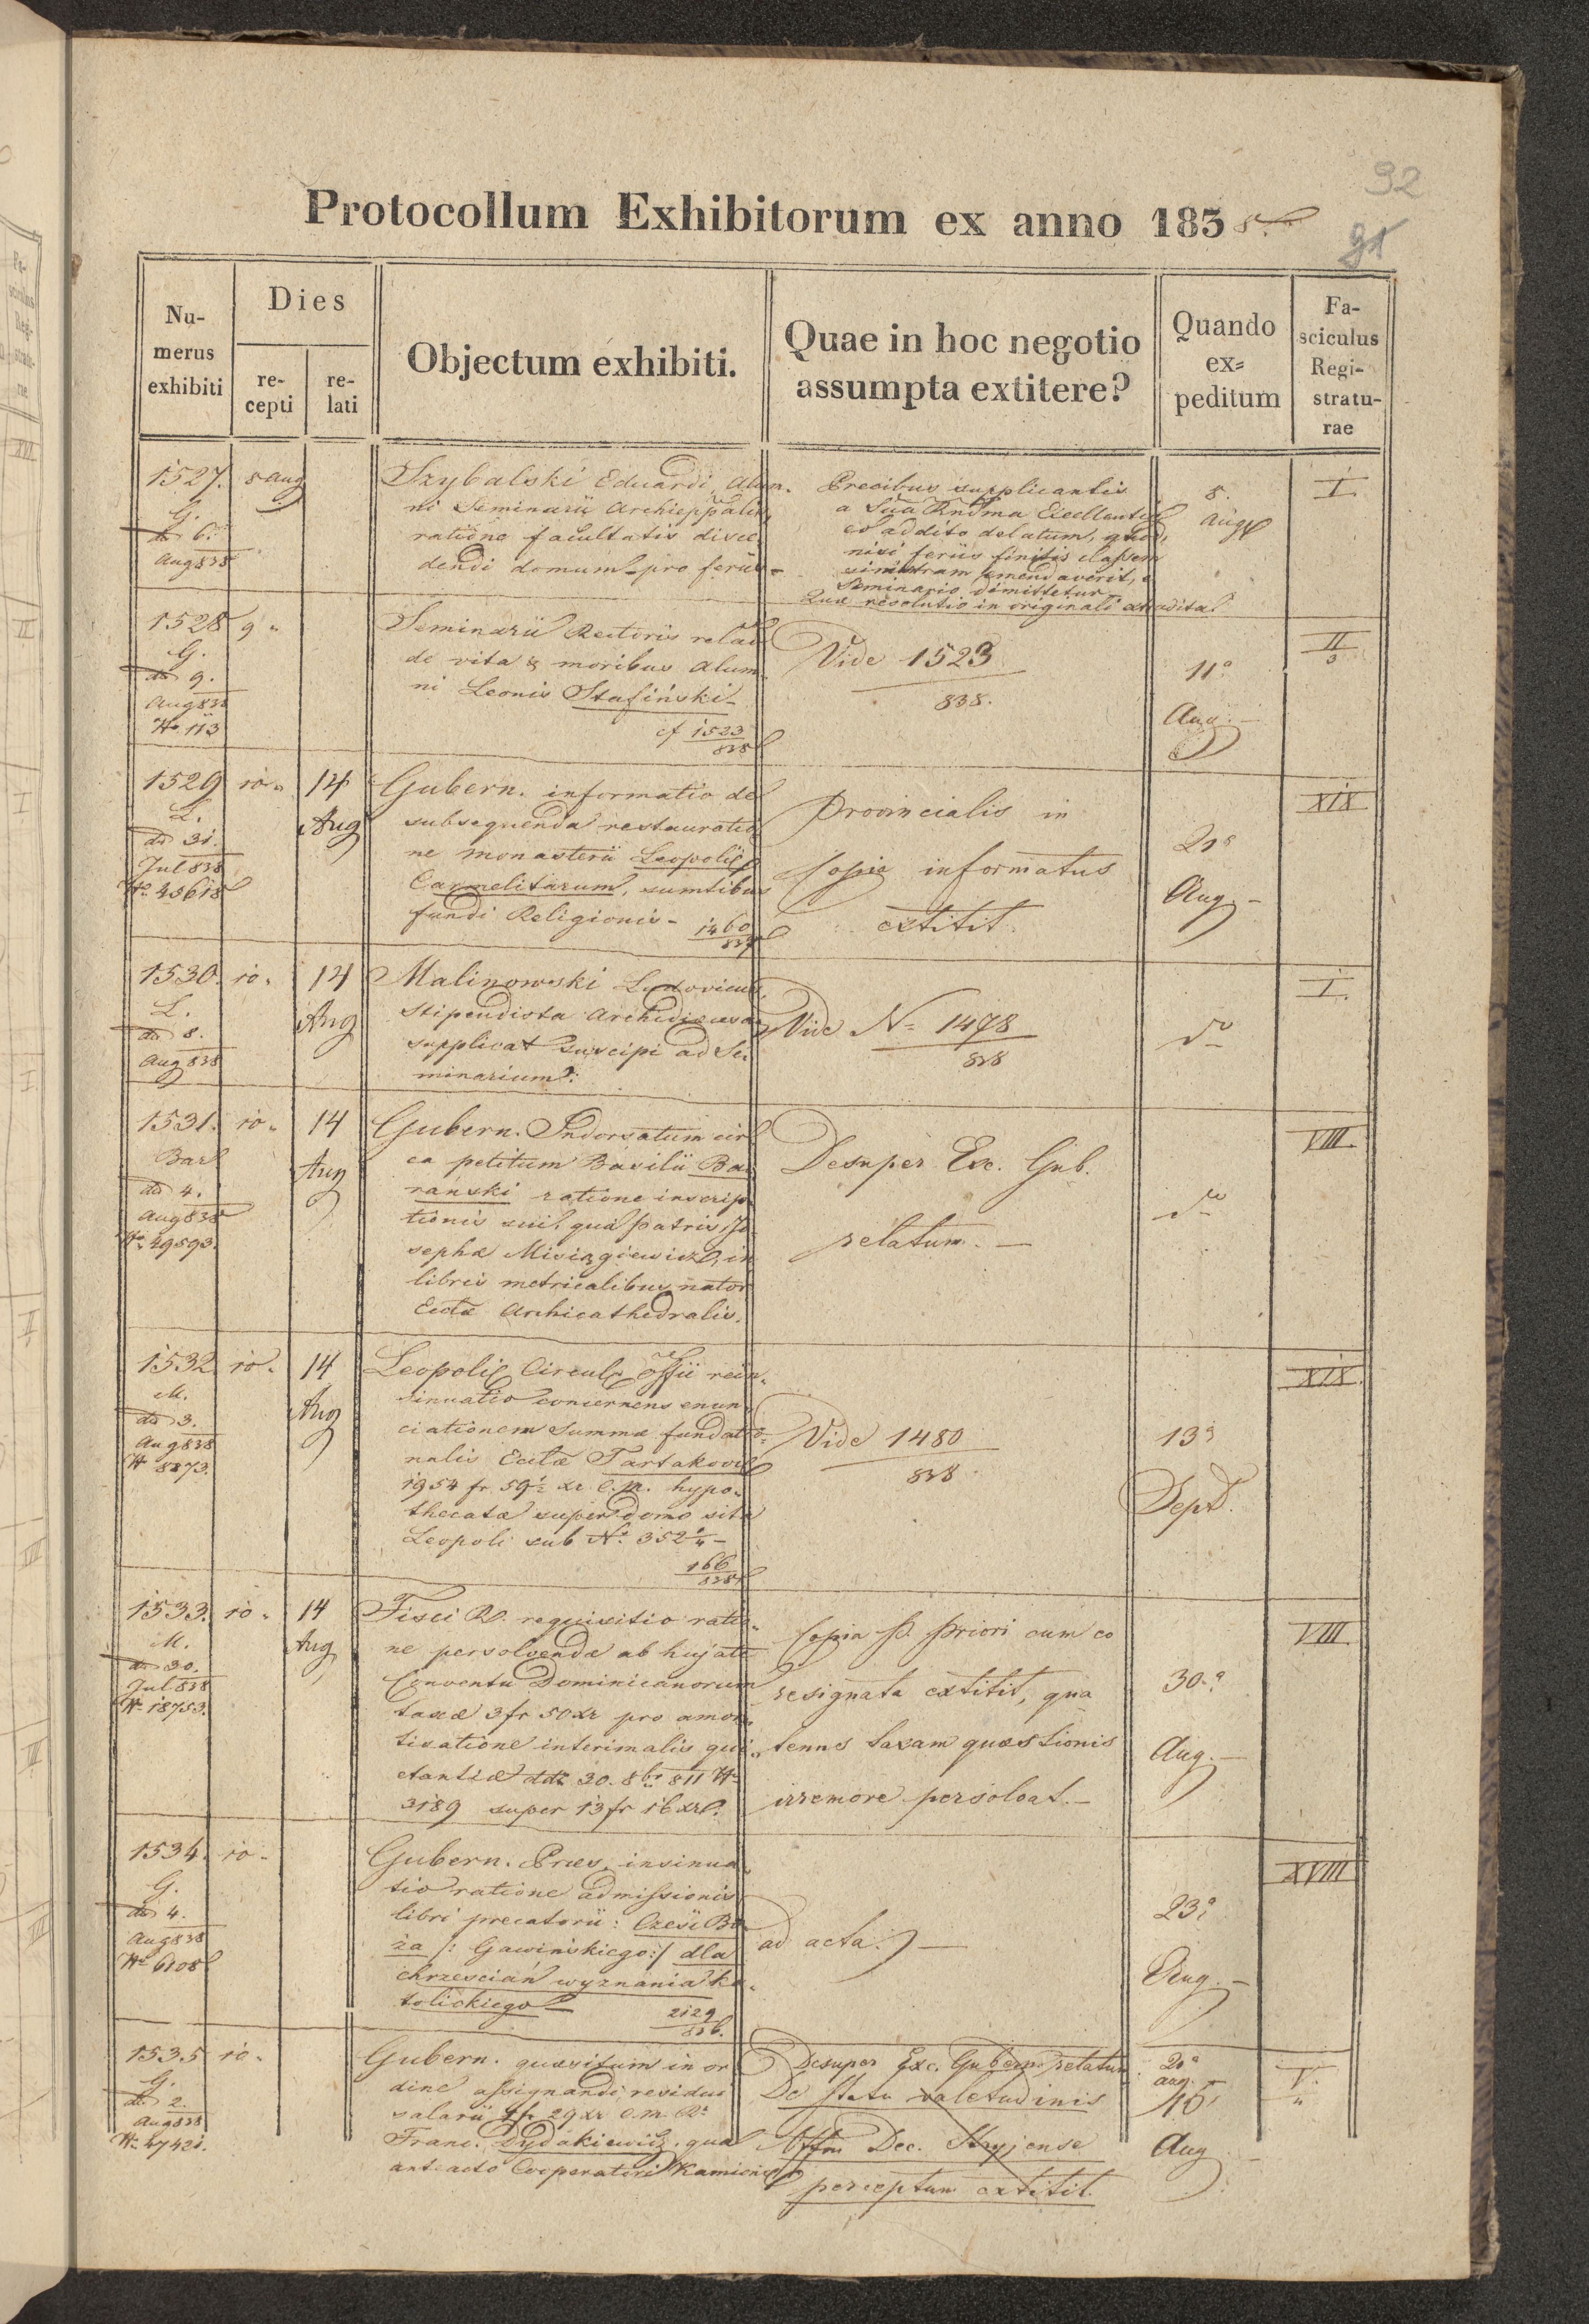 92
91
Protocollum Exhibitorum ex anno 1838
Numerus exhibiti
Dies
recepti
relati
Objectum exhibiti.
Quae in hoc negotio assumpta extitere?
Quando ex=peditum
Fasciculus Registraturae
1527. 8 Aug
G.
dd 6.
Aug 838
Szybalski Eduardi, Alum-
ni Seminarii Archieppalis,
ratione facultatis disce-
dendi domum pro feriis-
Precibus supplicantis
a Sua Rndma Excellentia
eo addito delatum, quod,
nisi feriis finitis classem
sinistram emendaverit, e
Seminario dimittetur
Quae resolutio in originali extradita
8.
Aug
I.
1528 9 "
G.
dd 9.
Aug 838
No 113
Seminarii Rectoris relat
de vita & moribus Alum
ni Leonis Stafiński-
cf 1523
838
Vide 1523
838.
11a
Aug.
II
1529 10 " 14
Aug
L.
dd 31.
Jul 838
No 45618
Gubern. informatio de
subsequenda restauratio
ne monasterii Leopolis
Carmelitarum, sumtibus
fundi Religionis-
1460
Provincialis in
copia informatus
extitit.
20a
Aug.-
XIX
1530. 10 " 14
Aug
L.
dd 8.
Aug 838
Malinowski Ludovicus,
stipendista Archidioecesa
supplicat suscipi ad Se-
minarium.
Vide No 1478
838
do
I.
1531. 10 " 14
Aug
Bar
dd 4.
Aug 838
No 49593.
Gubern. Indorsatum cir
ca petitum Basilii Ba
rański ratione inscrip
tionis sui, qua patris, Jo
sephae Misiągiewicz, in
libris metricalibus nator
Eccltae Archicathedralis.
Desuper Exc. Gub.
relatum.-
do
VIII.
1532. 10 " 14
Aug
M.
dd 3.
Aug 838
No 8273.
Leopolis Circul. offii rein-
sinuatio concernens enun
ciationem Summae fundatio-
nalis Eccltae Tartakovi
1954 fr 59 1/2 xr C.M. hypo-
thecatae super domo sita
Leopoli sub No 352 2/4 -
166
838
Vide 1480
838
13a
Sept.
XIX.
1533. 10 " 14
Aug
M.
dd 30.
Jul 838
No 18753.
Fisci R. requisitio ratio-
ne persolvendae ab hujate
Conventu Dominicanorum
taxae 3 fr 50 xr pro amor-
tisatione interimalis qui-
etantiae ddo 30. 8br 811 No
3189 super 13 fr 16 xr.
Copia P. Priori cum eo
resignata extitit, qua
tenus taxam quaestionis
irremore persolvat.-
30.a
Aug.-
VIII.
1534. 10 "
G.
dd 4.
Aug 838
No 6108
Gubern. Praes. insinua-
tio ratione admissionis
libri precatorii: Cześć Bo
ża /: Gawińskiego:/ dla
chrześcian wyznania ka-
tolickiego-
2129
836.
ad acta.-
23a
Aug.-
XVIII
1535 10 "
G.
dd 2.
Aug 838
No 47421.
Gubern. quaesitum in or
dine assignandi residui
salarii 1 fr 29 xr C.M. Ro
Franc. Dydakiewicz, qua
anteacto Cooperatori Kamionc
Desuper Exc. Gubern. relatum
De statu valetudinis
Offm Dec. Stryjense
perceptum extitit.
20a
Aug.
10
Aug
V.